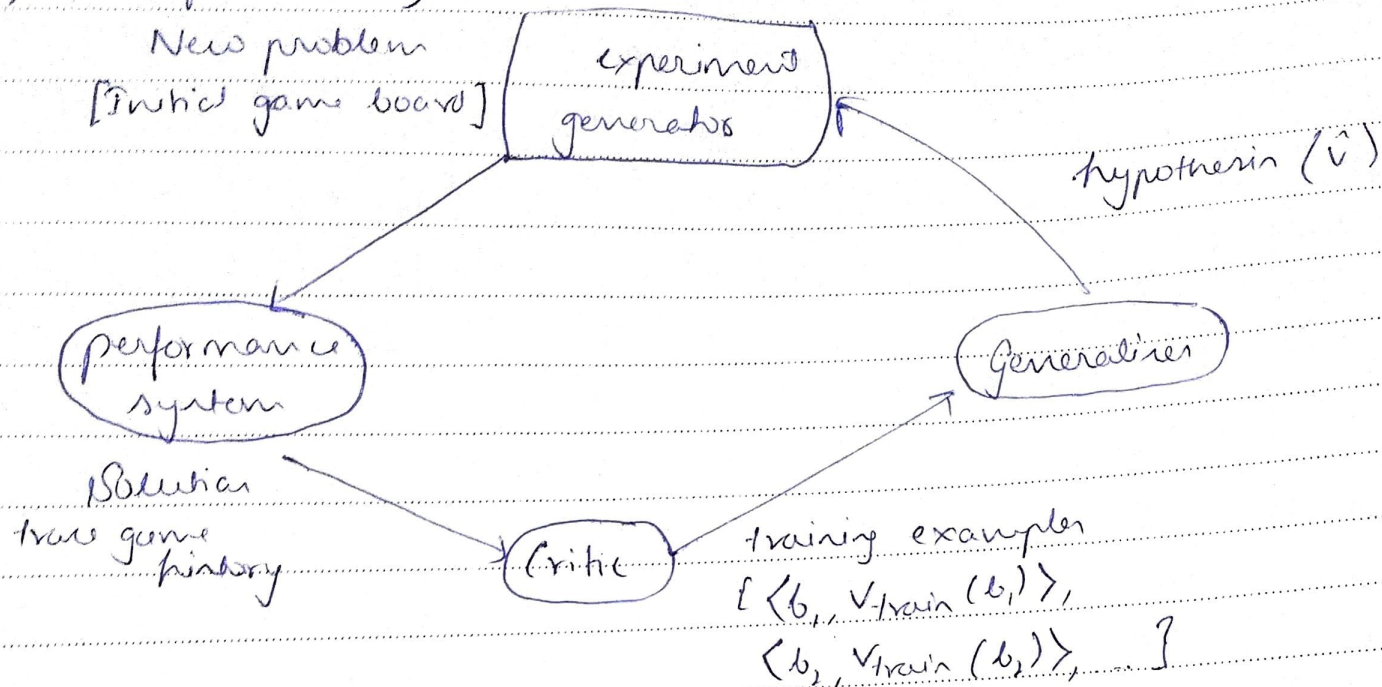 New problem
[Initial game board]
experiment
generator
hypothesis (v̂)
performance
system
Generaliser
Solution
trace game
history
Critic
training examples
[<b₁, Vtrain (b₁)>,
<b₂, Vtrain (b₂)>, .... ]